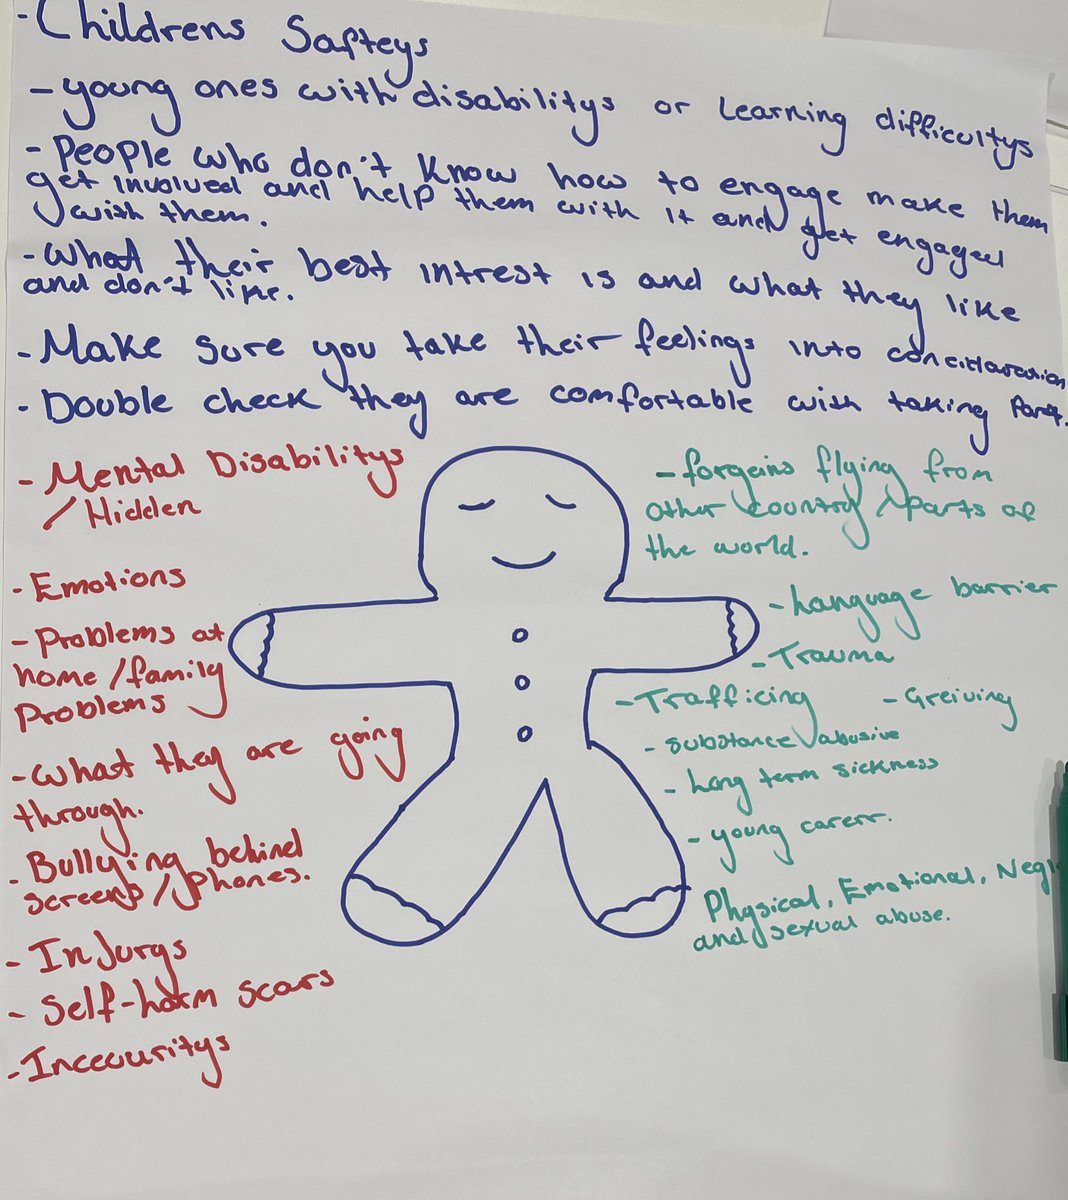 - Childrens Safteys
- young ones with disabilitys or learning difficultys
- People who don't know how to engage make them
get involved and help them with it and get engaged
with them.
- What their best intrest is and what they like
and don't like.
- Make sure you take their feelings into
- Double check they are comfortable with taking Part.
- Mental Disabilitys
/ Hidden
- Emotions
- Problems at
home / family
Problems
- What they are going
through.
- Bullying behind
screens / phones.
- Injurys
- Self-harm scars
- Inceouritys
- forgeins flying from
other country / parts of
the world.
- Language barrier
- Trauma
- Trafficing
- Greiving
- substance abusive
- Long term sickness
- young carerr.
Physical, Emotional, Negl
and sexual abuse.